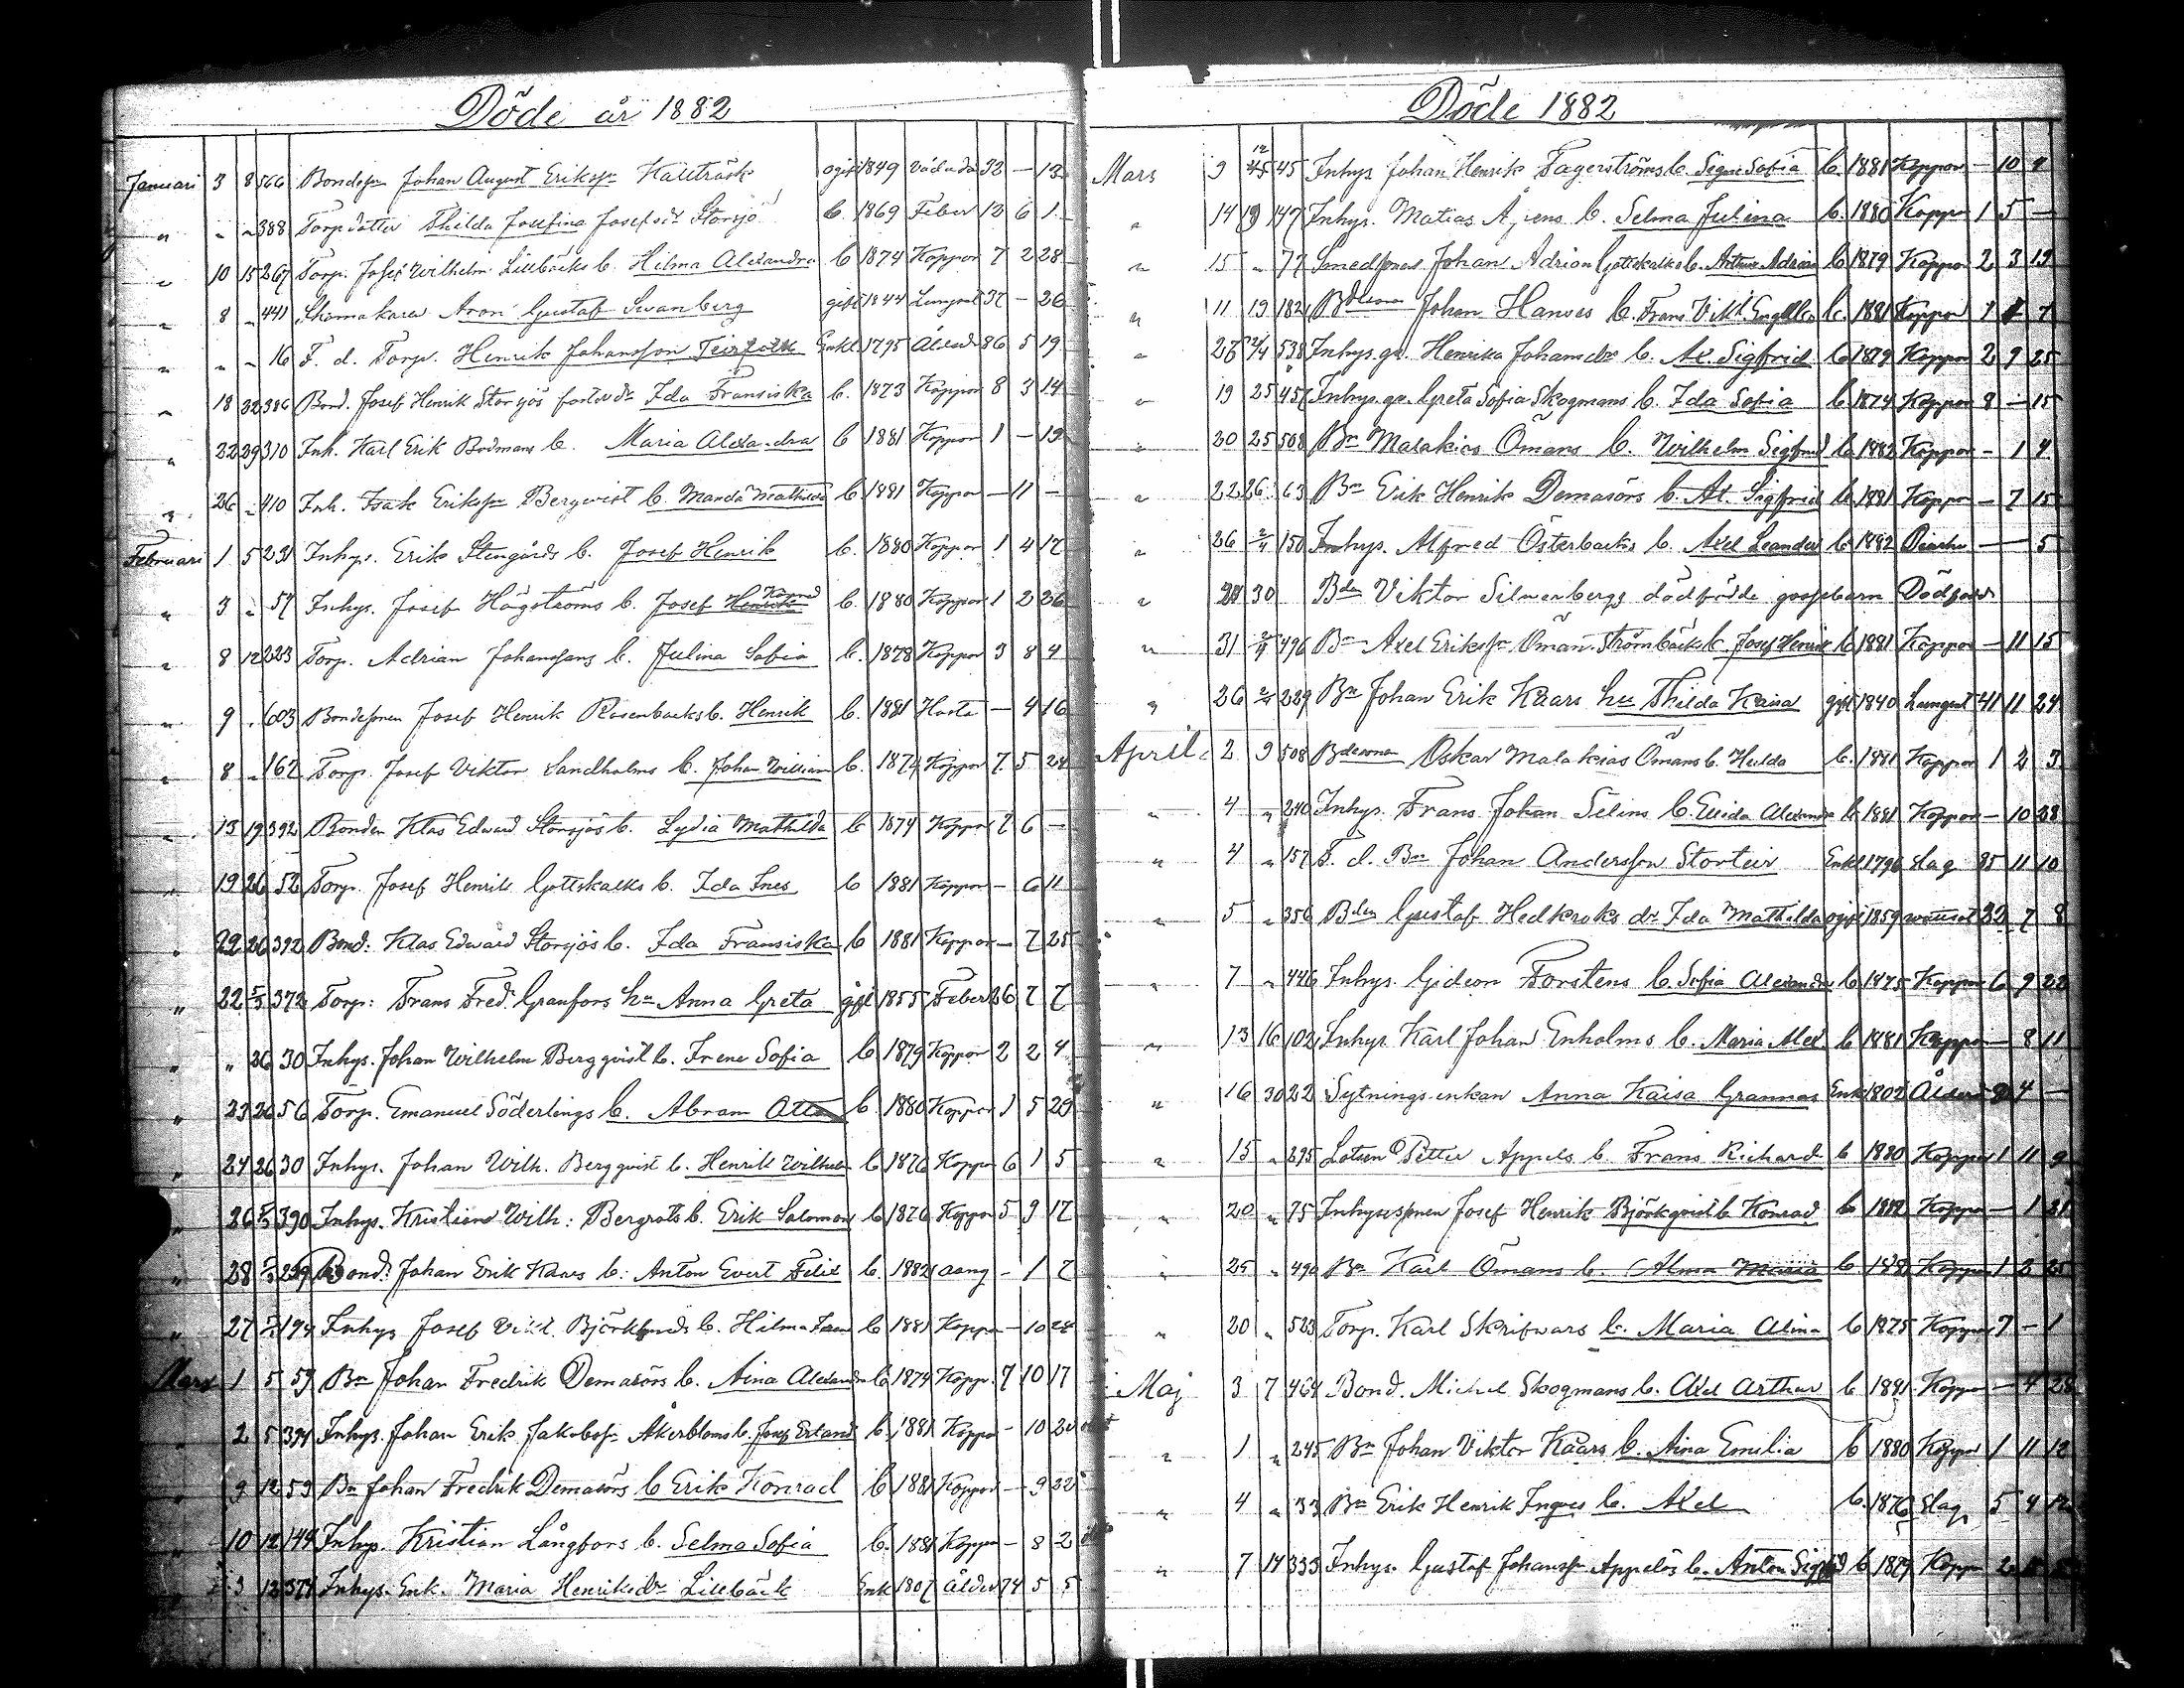 Döde år 1882
Januari 3 8 566 Bondeson Johan August Eriksson Kallträsk ogift 1849 vådada 32 — 13
" " " 388 Torpdotter Thilda Josefina Josefsdr Storsjö b. 1869 Feber 12 6 1
" 10 15 267 Torp. Josef Wilhelm Lillbäcks b. Hilma Alexandra b 1874 Koppor 7 2 28
" 8 " 441 Skomakare Aron Gustaf Svanberg gift 1844 Lungsot 37 — 26
" " " 16 F. d. Torp. Henrik Johansson Teirfolk Enkl. 1795 Ålder 86 5 19
" 18 22 386 Bond. Josef Henrik Storsjös fosterdr Ida Fransiska b. 1873 Koppor 8 3 14
" 22 29 310 Inh. Karl Erik Bodmans b. Maria Alexandra b 1881 Koppor 1 — 19
" 26 " 410 Inh. Isak Eriksson Berqvist b. Manda Mathilda b 1881 Koppor — 11 —
Februari 1 5 231 Inhys. Erik Stengårds b. Josef Henrik b. 1880 Koppor 1 4 17
" 3 " 57 Inhys. Josef Högströms b. Josef Henrik Konrad b. 1880 Koppor 1 2 26
" 8 12 223 Torp. Adrian Johanssons b. Julina Sofia b. 1878 Koppor 3 8 4
" 9 " 603 Bondesonen Josef Henrik Rosenbacks b. Henrik b. 1881 Hosta — 4 16
" 8 " 162 Torp. Josef Viktor Sandholms b. Johan William b. 1874 Koppor 7 5 28
" 15 19 392 Bonden Klas Edward Storsjös b. Lydia Mathilda b 1874 Koppor 7 6 —
" 19 26 52 Torp. Josef Henrik Gottskalks b. Ida Ines b 1881 Koppor — 6 11
" 22 26 392 Bond. Klas Edward Storsjös b. Ida Fransiska b 1881 Koppor — 7 25
" 22 5/3 372 Torp: Frans Fred. Granfors hu Anna Greta gift 1855 Feber 26 7 7
" " 26 30 Inhys. Johan Wilhelm Bergqvist b. Irene Sofia b 1879 Koppor 2 2 4
" 23 26 56 Torp. Emanuel Söderlings b. Abram Otto b. 1880 Koppor 1 5 29
" 24 26 30 Inhys. Johan Wilh. Bergqvist b. Henrik Wilhelm b. 1876 Koppor 6 1 5
" 26 5/3 390 Inhys. Kristian Wilh: Bergrots b. Erik Salomon b 1876 Koppor 5 9 17
" 28 5/3 239 Bond: Johan Erik Kaars b: Anton Evert Felix b. 1882 aang — 1 7
" 27 194 Inhys Josef Vikt. Björklunds b. Hilma b 1881 Koppor — 10 28
Mars 1 5 59 Bn Johan Fredrik Demasörs b. Aina Alexandra b 1874 Koppor 7 10 17
" 2 5 394 Inhys. Johan Erik Jakobsson Åkerbloms b. Josef Erland b. 1881 Koppor — 10 20
" 9 12 59 Bn Johan Fredrik Demasörs b Erik Konrad b 1881 Koppor — 9 22
" 10 12 144 Inhys. Kristian Långfors b. Selma Sofia b. 1881 Koppor — 8 2
" 3 12 374 Inhys. Enk. Maria Henriksdr Lillbäck Enk 1807 Ålder 74 5 5
Döde 1882
Mars 9 12 45 Inhys Johan Henrik Fagerströms b. Signe Sofia b. 1881 Koppor — 10 4
" 14 19 147 Inhys. Matias Ajens b. Selma Julina b. 1880 Koppor 1 5 —
" 15 " 77 Smedsonen Johan Adrian Gottskalks b. Arthur Adrian b 1879 Koppor 2 3 19
" 11 19 182 Bdesonen Johan Hanses b. Frans Vikt. b. 1881 Koppor 7
" 27 2/4 538 Inhys.qv. Henrika Johansdr b. Al. Sigfrid b 1879 Koppor 2 9 25
" 19 25 457 Inhys.qv. Greta Sofia Skogmans b. Ida Sofia b 1874 Koppor 8 — 15
" 20 25 508 Bn Malakias Ömans b. Wilhelm Sigfrid b 1882 Koppor — 1 4
" 22 26 63 Bn Erik Henrik Demasörs b. Al. Sigfrid b 1881 Koppor — 7 15
" 26 2/4 150 Inhys. Alfred Österbacks b. Axel Leander b 1882 — — 5
" 28 30 Bden Viktor Silwerbergs dödfödde gossebarn Dödfödd
" 31 2/4 496 Bn Axel Eriksson Öman Strömbäcks b. Josef Henrik b 1881 Koppor — 11 15
" 26 2/4 229 Bn Johan Erik Kaars hu Thilda Kaisa gift 1840 Lungsot 41 11 24
April 2 9 508 Bdesonen Oskar Malakias Ömans b. Hulda b. 1881 Koppor 1 2 3
" 4 " 240 Inhys. Frans Johan Selins b. Alexandra b. 1881 Koppor — 10 28
" 4 " 157 F. d. Bn Johan Andersson Storteir Enkl 1796 Slag 85 11 10
" 5 " 356 Bden Gustaf Hedkroks dr Ida Mathilda ogift 1859 22 7 8
" 7 " 446 Inhys. Gideon Forstens b. Sofia Alexandra b 1875 Koppor 6 9 22
" 13 16 102 Inhys Karl Johan Enholms b. Maria Alex. b 1881 Koppor — 8 11
" 16 30 22 Sytningsenkan Anna Kaisa Grannas Enk 1802 Ålder 4 —
" 15 " 295 Lotsen Petter Appels b. Frans Richard b 1880 Koppor 1 11 9
" 20 " 75 Inhysesonen Josef Henrik Björkqvist b Konrad b 1882 Koppor — 1 21
" 25 " 490 Bn Karl Ömans b. Alma Maria b. 1881 Koppor 1 2 25
" 20 " 523 Torp. Karl Skrifvars b. Maria Alina b 1875 Koppor 7 — 1
Maj 3 7 464 Bond. Michel Skogmans b. Axel Arthur b 1881 Koppor — 4 28
" 1 " 245 Bn Johan Viktor Kaars b. Aina Emilia b 1880 Koppor 1 11 12
" 4 " 33 Bn Erik Henrik Ingves b. Axel b. 1876 Slag 5 4 12
" 7 14 333 Inhys. Gustaf Johansson Appelös b. Anton Sigfrid b 1879 Koppor 2